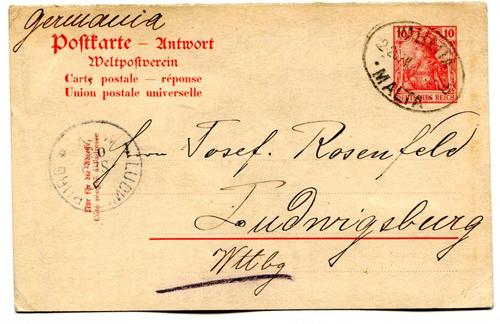 Germania
Postkarte – Antwort
Weltpostverein
Carte postale — réponse
Union postale universelle
10 10
DEUTSCHES REICH
MALTA
LUDW
BURG
Nur für die Adresse.
Herrn Josef Rosenfeld
Ludwigsburg
Wttbg